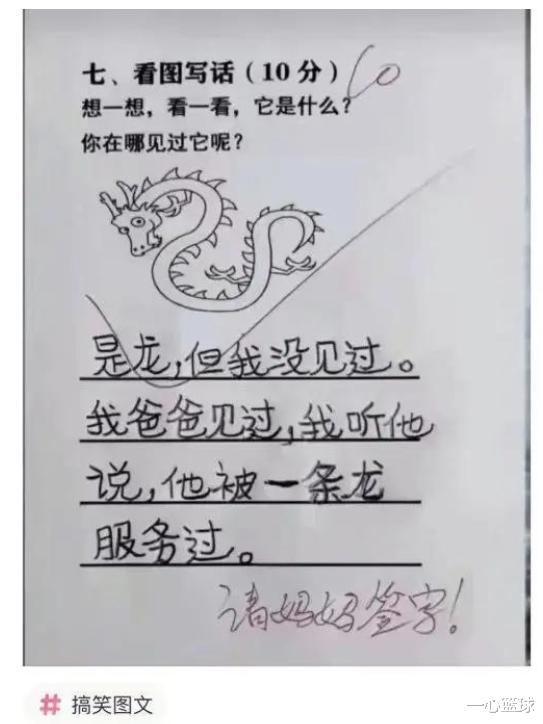 七、看图写话（10分）
10
想一想，看一看，它是什么？
你在哪见过它呢？
是龙，但我没见过。
我爸爸见过，我听他
说，他被一条龙
服务过。
请妈妈签字！
# 搞笑图文
一心篮球